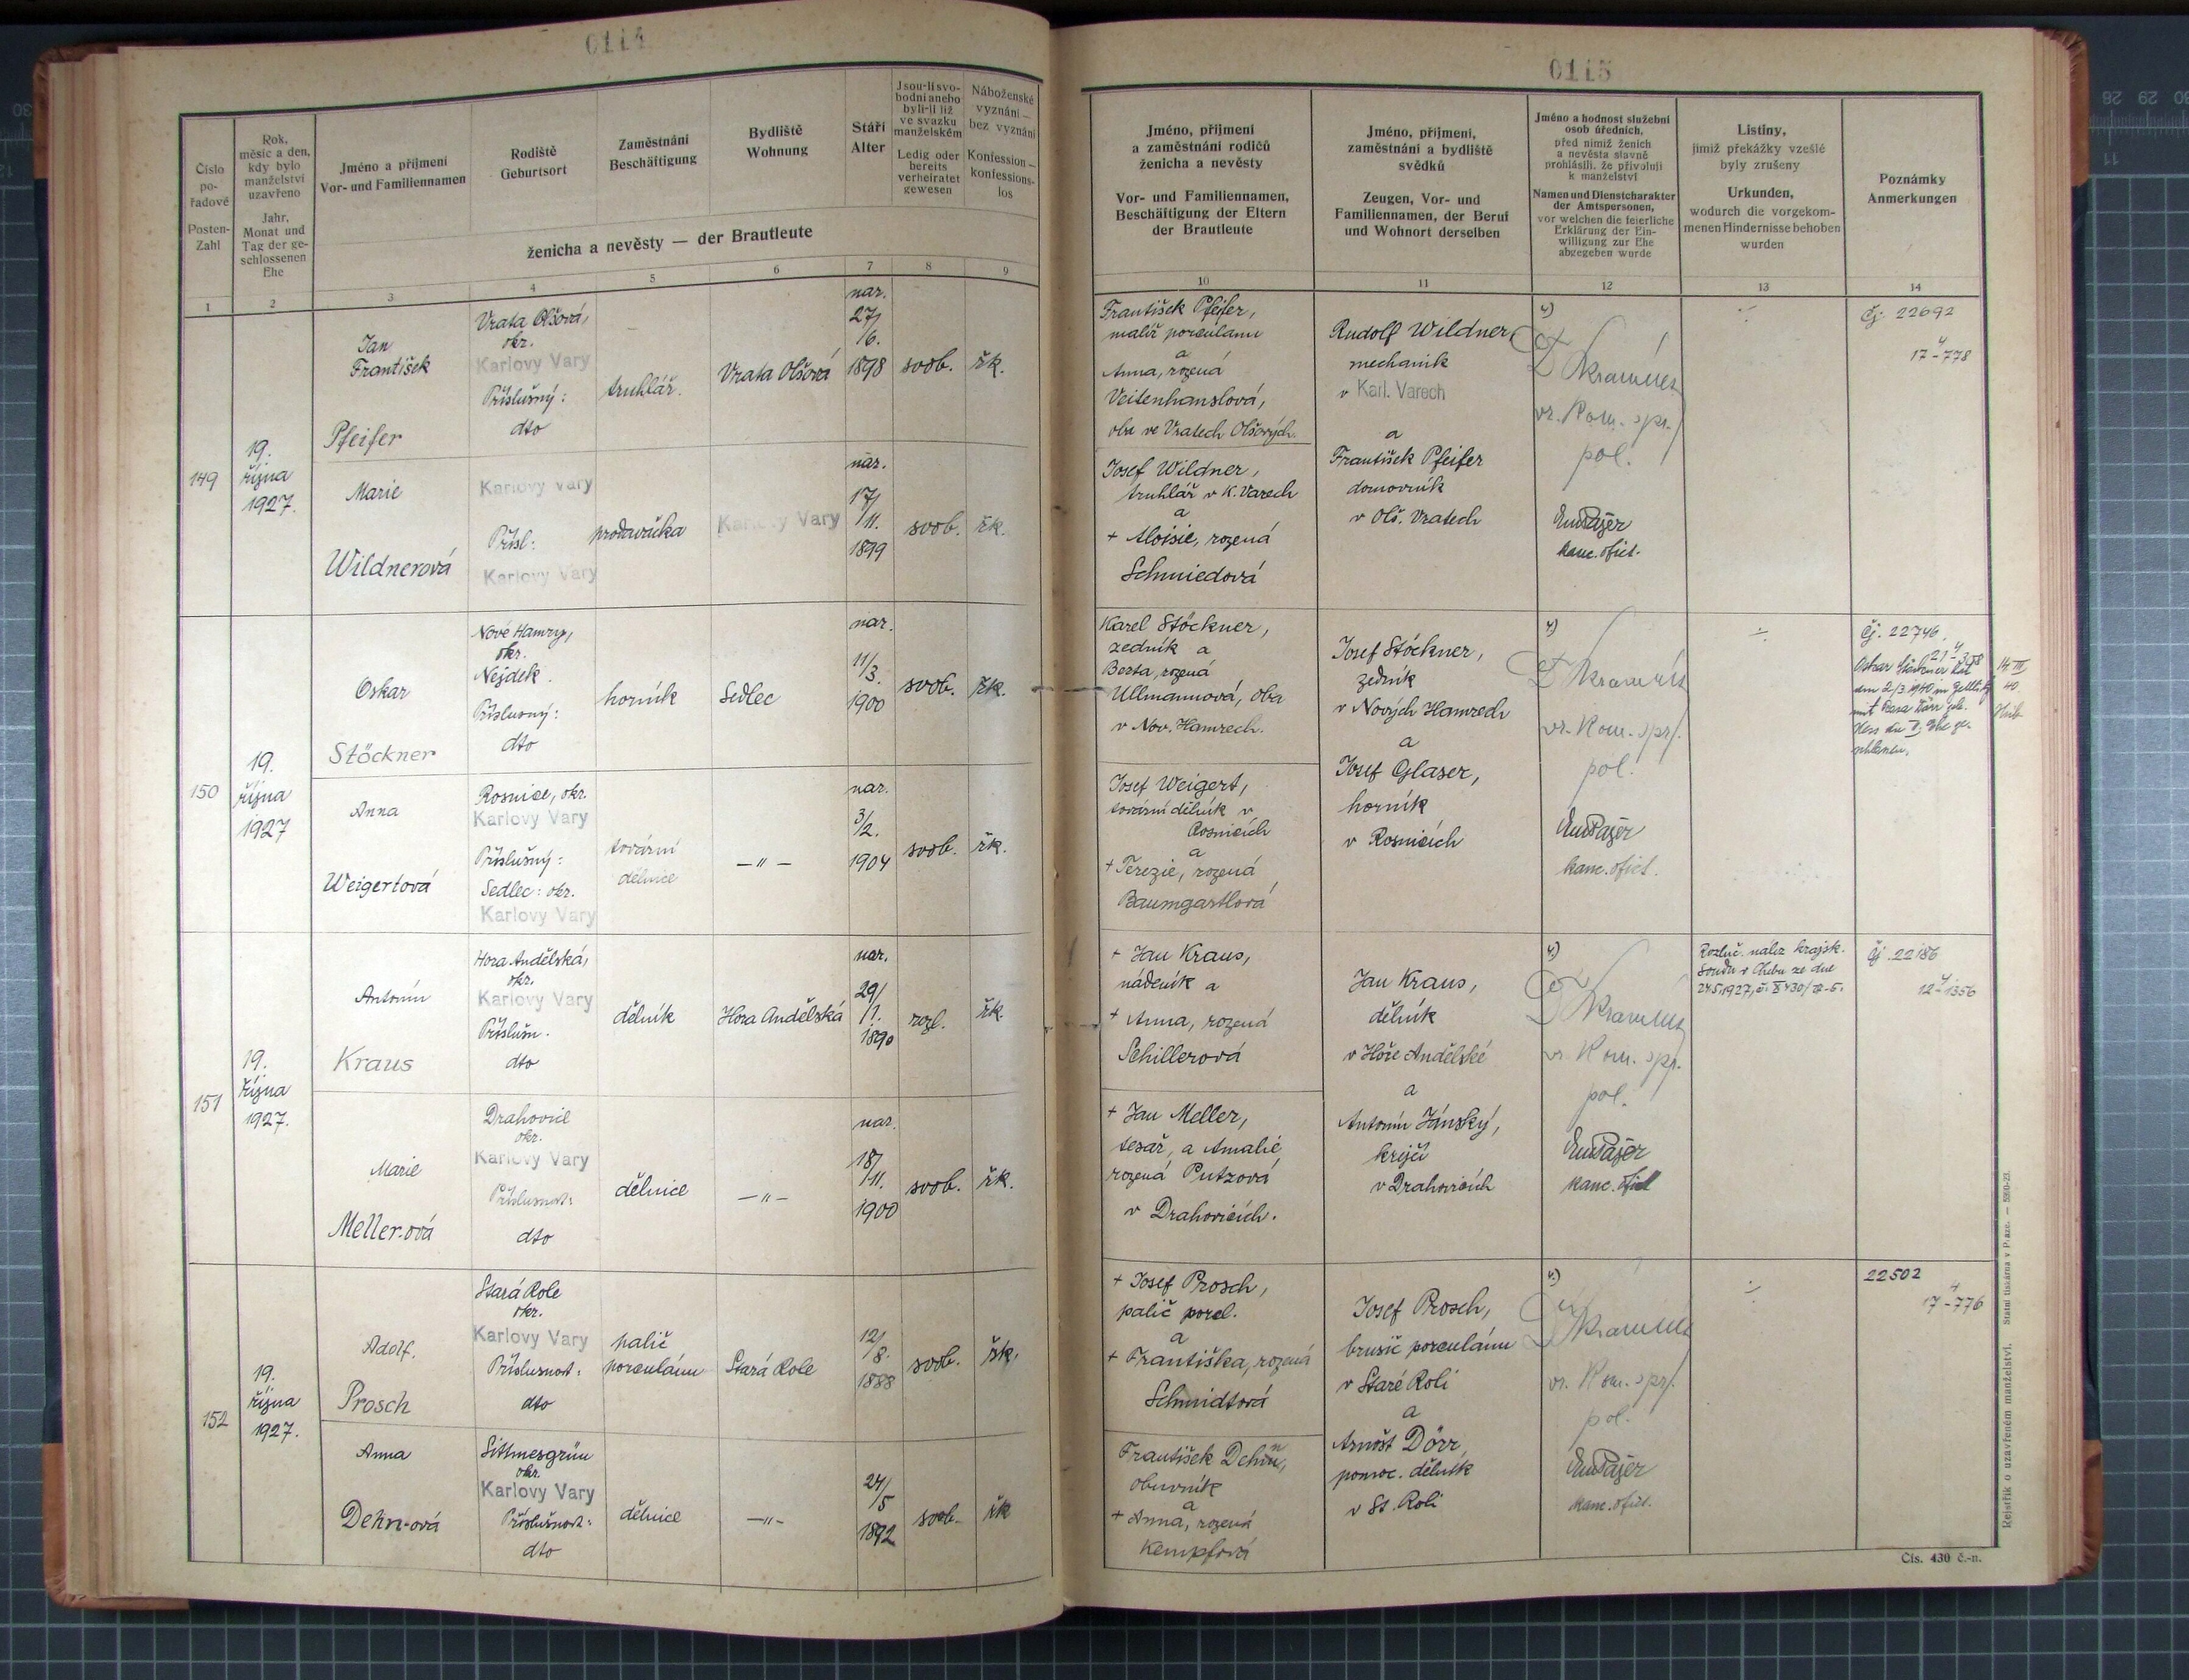 0114
Číslo
po-
řadové
Posten-
Zahl
Rok,
měsíc a den,
kdy bylo
manželství
uzavřeno
Jahr,
Monat und
Tag der ge-
schlossenen
Ehe
Jméno a příjmení
Vor- und Familiennamen
Rodiště
Geburtsort
Zaměstnání
Beschäftigung
Bydliště
Wohnung
Stáří
Alter
Jsou-li svo-
bodni aneho
byli-li již
ve svazku
manželském
Ledig oder
bereits
verheiratet
gewesen
Náboženské
vyznání —
bez vyznání
Konfession —
konfessions-
los
ženicha a nevěsty — der Brautleute
1
2
3
4
5
6
7
8
9
149
19.
října
1927.
Jan
František
Pfeifer
Vrata Olšová,
okr.
Karlovy Vary
Příslušný:
dto
truhlář.
Vrata Olšová
nar.
27/
/6.
1898
svob.
řk.
Marie
Wildnerová
Karlovy Vary
Přísl:
Karlovy Vary
prodavačka
Karlovy Vary
nar.
17/
/11.
1899
svob.
řk.
150
19.
října
1927
Oskar
Stöckner
Nové Hamry,
okr.
Nejdek.
Příslušný:
dto
horník
Sedlec
nar.
11/
/3.
1900
svob.
řk.
Anna
Weigertová
Rosnice, okr.
Karlovy Vary
Příslušný:
Sedlec: okr.
Karlovy Vary
tovární
dělnice
—"—
nar.
3/
/2.
1904
svob.
řk.
151
19.
října
1927.
Antonín
Kraus
Hora Andělská,
okr.
Karlovy Vary
Příslušn.
dto
dělník
Hora Andělská
nar.
29/
/1.
1890
rozl.
řk.
Marie
Meller-ová
Drahovice
okr.
Karlovy Vary
Příslusnost:
dto
dělnice
—"—
nar.
18/
/11.
1900
svob.
řk.
152
19.
října
1927.
Adolf.
Prosch
Stará Role
okr.
Karlovy Vary
Příslusnost:
dto
palič
porculánu
Stará Role
12/
/8.
1888
svob.
řk.
Anna
Dehn-ová
Sittmesgrün
okr.
Karlovy Vary
Příslušnost:
dto
dělnice
—"—
24/
/5
1892
svob.
řk
0115
Jméno, příjmení
a zaměstnání rodičů
ženicha a nevěsty
Vor- und Familiennamen,
Beschäftigung der Eltern
der Brautleute
Jméno, příjmení,
zaměstnání a bydliště
svědků
Zeugen, Vor- und
Familiennamen, der Beruf
und Wohnort derselben
Jméno a hodnost služební
osob úředních,
před nimiž ženich
a nevěsta slavně
prohlásili, že přivolují
k manželství
Namen und Dienstcharakter
der Amtspersonen,
vor welchen die feierliche
Erklärung der Ein-
willigung zur Ehe
abgegeben wurde
Listiny,
jimiž překážky vzešlé
byly zrušeny
Urkunden,
wodurch die vorgekom-
menen Hindernisse behoben
wurden
Poznámky
Anmerkungen
10
11
12
13
14
František Pfeifer,
malíř porculanu
a
Anna, rozená
Veitenhanslová,
oba ve Vratech Olšových.
Josef Wildner,
truhlář v K. Varech
a
+ Aloisie, rozená
Schmiedová
Rudolf Wildner
mechanik
v Karl. Varech
a
František Pfeifer
domovník
v Olš. Vratech
vr. Kom. spr.
pol.
kanc. ofict.
Čj. 22692
4
17-778
Karel Stöckner,
zedník a
Berta, rozená
Ullmannová, oba
v Nov. Hamrech.
Josef Weigert,
tovární dělník v
Rosnicích
a
+ Terezie, rozená
Baumgartlová
Josef Stöckner,
zedník
v Nových Hamrech
a
Josef Glaser,
horník
v Rosnicích
vr. Kom. spr.
pol.
kanc. ofict.
Čj. 22746
4
21-358
Oskar Stöckner hat
am 2/3 1940 in Zettlitz
mit Rosa Dörr geb.
Hess die II. Ehe ge-
schlossen.
14 III
40.
+ Jan Kraus,
nádeník a
+ Anna, rozená
Schillerová
+ Jan Meller,
tesař, a Amalie,
rozená Putzová
v Drahovicích.
Jan Kraus,
dělník
v Hoře Andělské
a
Antonín Jánský,
krejčí
v Drahovicích
vr. Kom. spr.
pol.
kanc. ofict
Rozluč. nález krajsk.
Soudu v Chebu ze dne
24.5.1927,
Čj. 22186
4
12-1356
+ Josef Prosch,
palič porcl.
a
+ Františka, rozená
Schmidtová
František Dehn,
obuvník
a
+ Anna, rozená
Kempfová
Josef Prosch,
brusič porculánu
v Staré Roli
a
Arnošt Dörr,
pomoc. dělník
v St. Roli
vr. Kom. spr.
pol.
kanc. ofict.
22502
4
17-776
Rejstřík o uzavřeném manželství. Státní tiskárna v Praze. —
Čís. 430 č.-n.